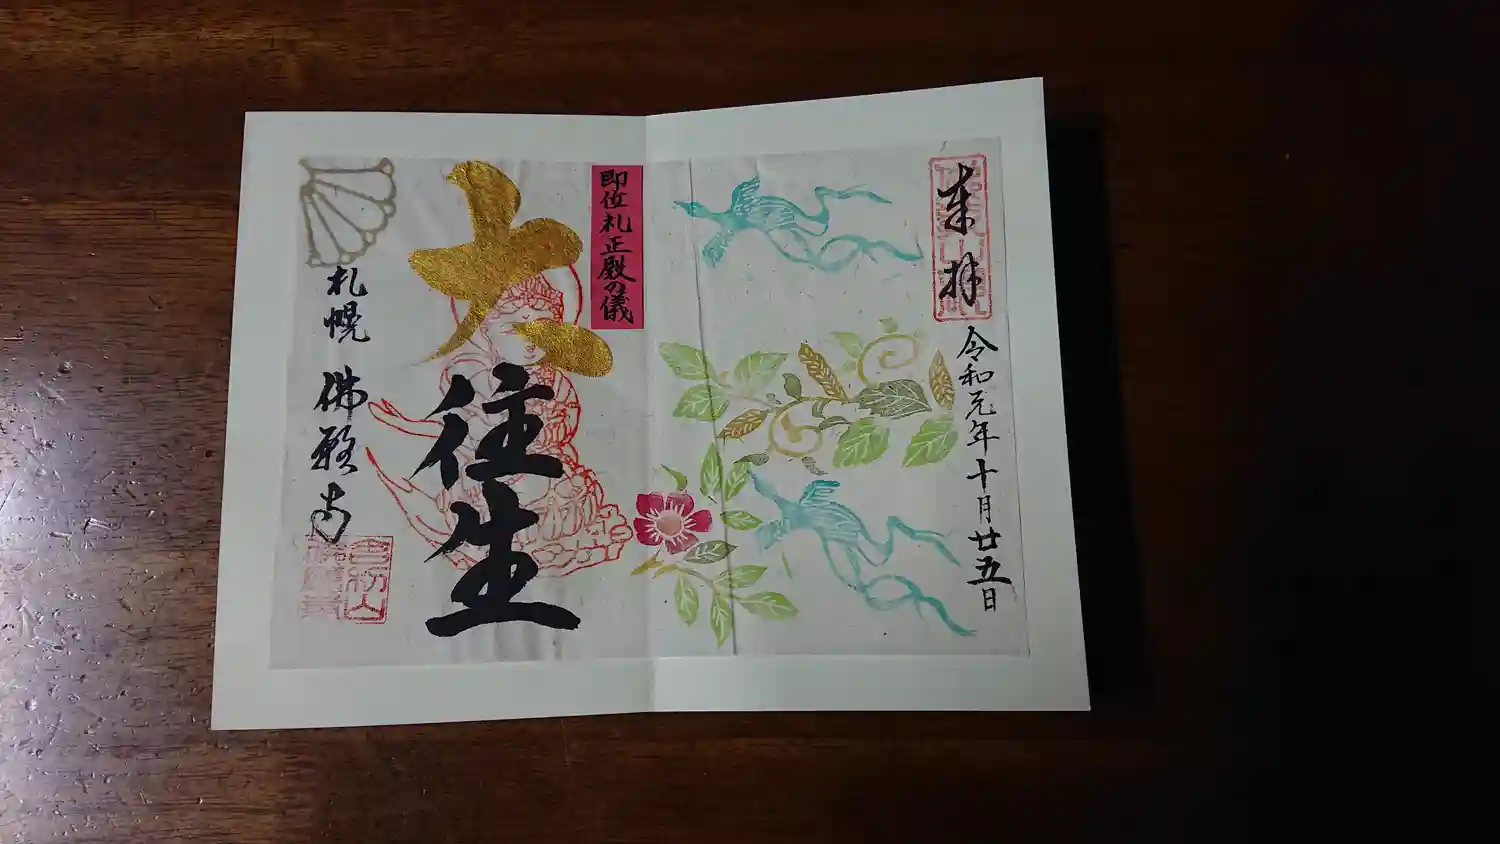 来拝
令和元年十月廿五日
即位礼正殿の儀
大往生
札幌 佛願寺